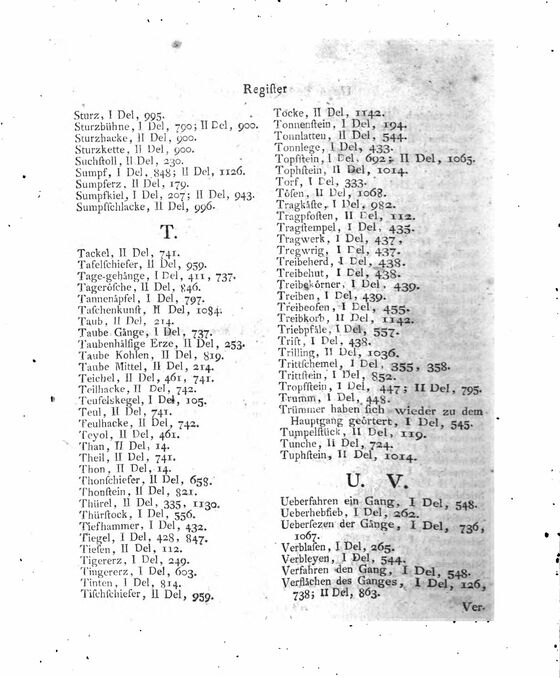 Regiſter
Sturz, I Del, 995.
Sturzbühne, I Del, 790; II Del, 900.
Sturzhacke, II Del, 900.
Sturzkette, II Del, 900.
Suchſtoll, II Del, 230.
Sumpf, I Del, 848; II Del, 1126.
Sumpferz, II Del, 179.
Sumpfkiel, I Del, 207; II Del, 943.
Sumpfſchlacke, II Del, 996.
T.
Tackel, II Del, 741.
Tafelſchiefer, II Del, 959.
Tage-gehänge, I Del, 411, 737.
Tageröſche, II Del, 846.
Tannenäpfel, I Del, 797.
Taſchenkunſt, II Del, 1084.
Taub, II Del, 214.
Taube Gänge, I Del, 737.
Taubenhälſige Erze, II Del, 253.
Taube Kohlen, II Del, 819.
Taube Mittel, II Del, 214.
Teichel, II Del, 461, 741.
Teilhacke, II Del, 742.
Teufelskegel, I Del, 105.
Teul, II Del, 741.
Teulhacke, II Del, 742.
Teyol, II Del, 461.
Than, II Del, 14.
Theil, II Del, 741.
Thon, II Del, 14.
Thonſchiefer, II Del, 658.
Thonſtein, II Del, 821.
Thürel, II Del, 335, 1130.
Thürſtock, I Del, 556.
Tiefhammer, I Del, 432.
Tiegel, I Del, 428, 847.
Tieſen, II Del, 112.
Tigererz, I Del, 249.
Tingererz, I Del, 603.
Tinten, I Del, 814.
Tiſchſchiefer, II Del, 959.
Töcke, II Del, 1142.
Tonnenſtein, I Del, 194.
Tonnlatten, II Del, 544.
Tonnlege, I Del, 433.
Topſtein, I Del, 692; II Del, 1065.
Tophſtein, II Del, 1014.
Torf, I Del, 333.
Töſen, II Del, 1068.
Tragkäſte, I Del, 982.
Tragpfoſten, II Del, 112.
Tragſtempel, I Del, 435.
Tragwerk, I Del, 437,
Tregwrig, I Del, 437.
Treibeherd, I Del, 438.
Treibehut, I Del, 438.
Treibekörner, I Del, 439.
Treiben, I Del, 439.
Treibeofen, I Del, 455.
Treibkorb, II Del, 1142.
Triebpfäle, I Del, 557.
Trift, I Del, 438.
Trilling, II Del, 1036.
Trittſchemel, I Del, 355, 358.
Trittſtein, I Del, 852.
Tropfſtein, I Del, 447; II Del, 795.
Trumm, I Del, 448.
Trümmer haben ſich wieder zu dem
Hauptgang geörtert, I Del, 545.
Tumpelſtück, II Del, 119.
Tunche, II Del, 724.
Tuphſtein, II Del, 1014.
U. V.
Ueberfahren ein Gang, I Del, 548.
Ueberhebſieb, I Del, 262.
Ueberſezen der Gänge, I Del, 736,
1067.
Verblaſen, I Del, 265.
Verbleyen, I Del, 544.
Verfahren den Gang, I Del, 548.
Verflächen des Ganges, I Del, 126,
738; II Del, 863.
Ver-